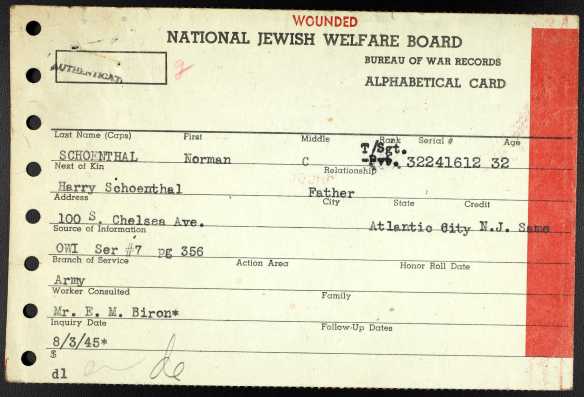 WOUNDED
NATIONAL JEWISH WELFARE BOARD
BUREAU OF WAR RECORDS
AUTHENTICAT
ALPHABETICAL CARD
Last Name (Caps) First Middle Rank Serial # Age
T/Sgt.
SCHOENTHAL Norman C Pvt. 32241612 32
Next of Kin Relationship
Harry Schoenthal Father
Address City State Credit
100 S. Chelsea Ave. Atlantic City N.J. Same
Source of Information
OWI Ser #7 pg 356
Branch of Service Action Area Honor Roll Date
Army
Worker Consulted Family
Mr. E. M. Biron*
Inquiry Date Follow-Up Dates
8/3/45*
$
dl de